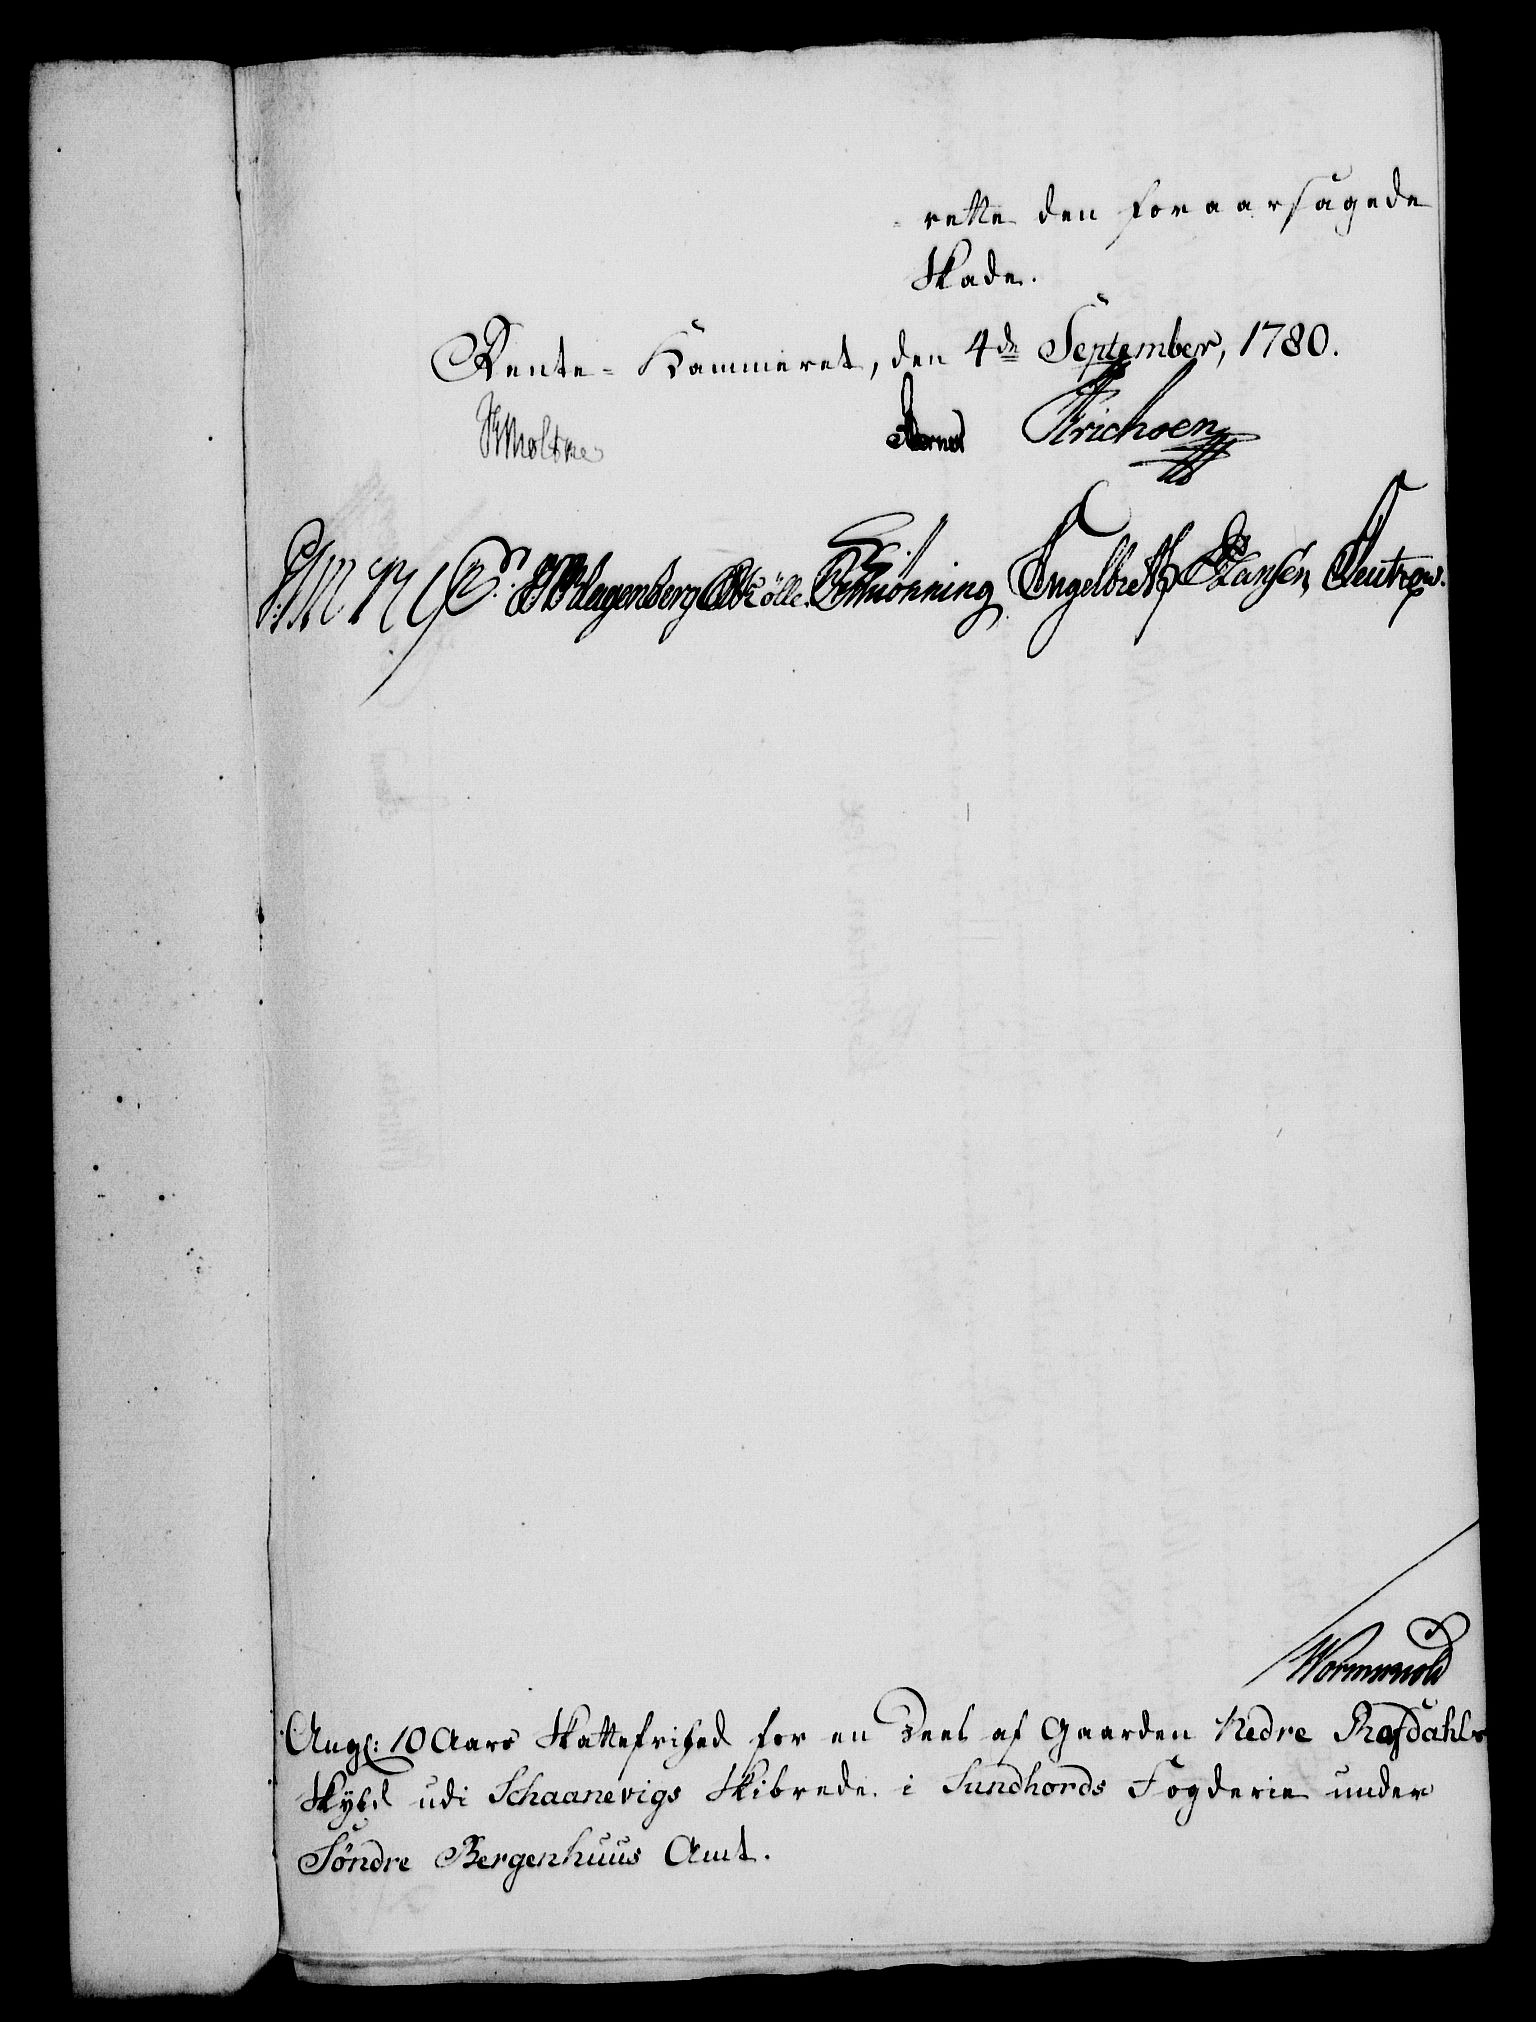 rette den foraarsagede
Skade.
Rente-Kammeret, den 4de September, 1780.
Moltke Erichsen
Hagenberg Schiønning Engelbreth Hansen
Wormskiold
Angl: 10 Aars Skattefrihed for en Deel af Gaarden Nedre Rafdahls
Skyld udi Schaanevigs Skibrede i Sundhords Fogderie under
Søndre Bergenhuus Amt.